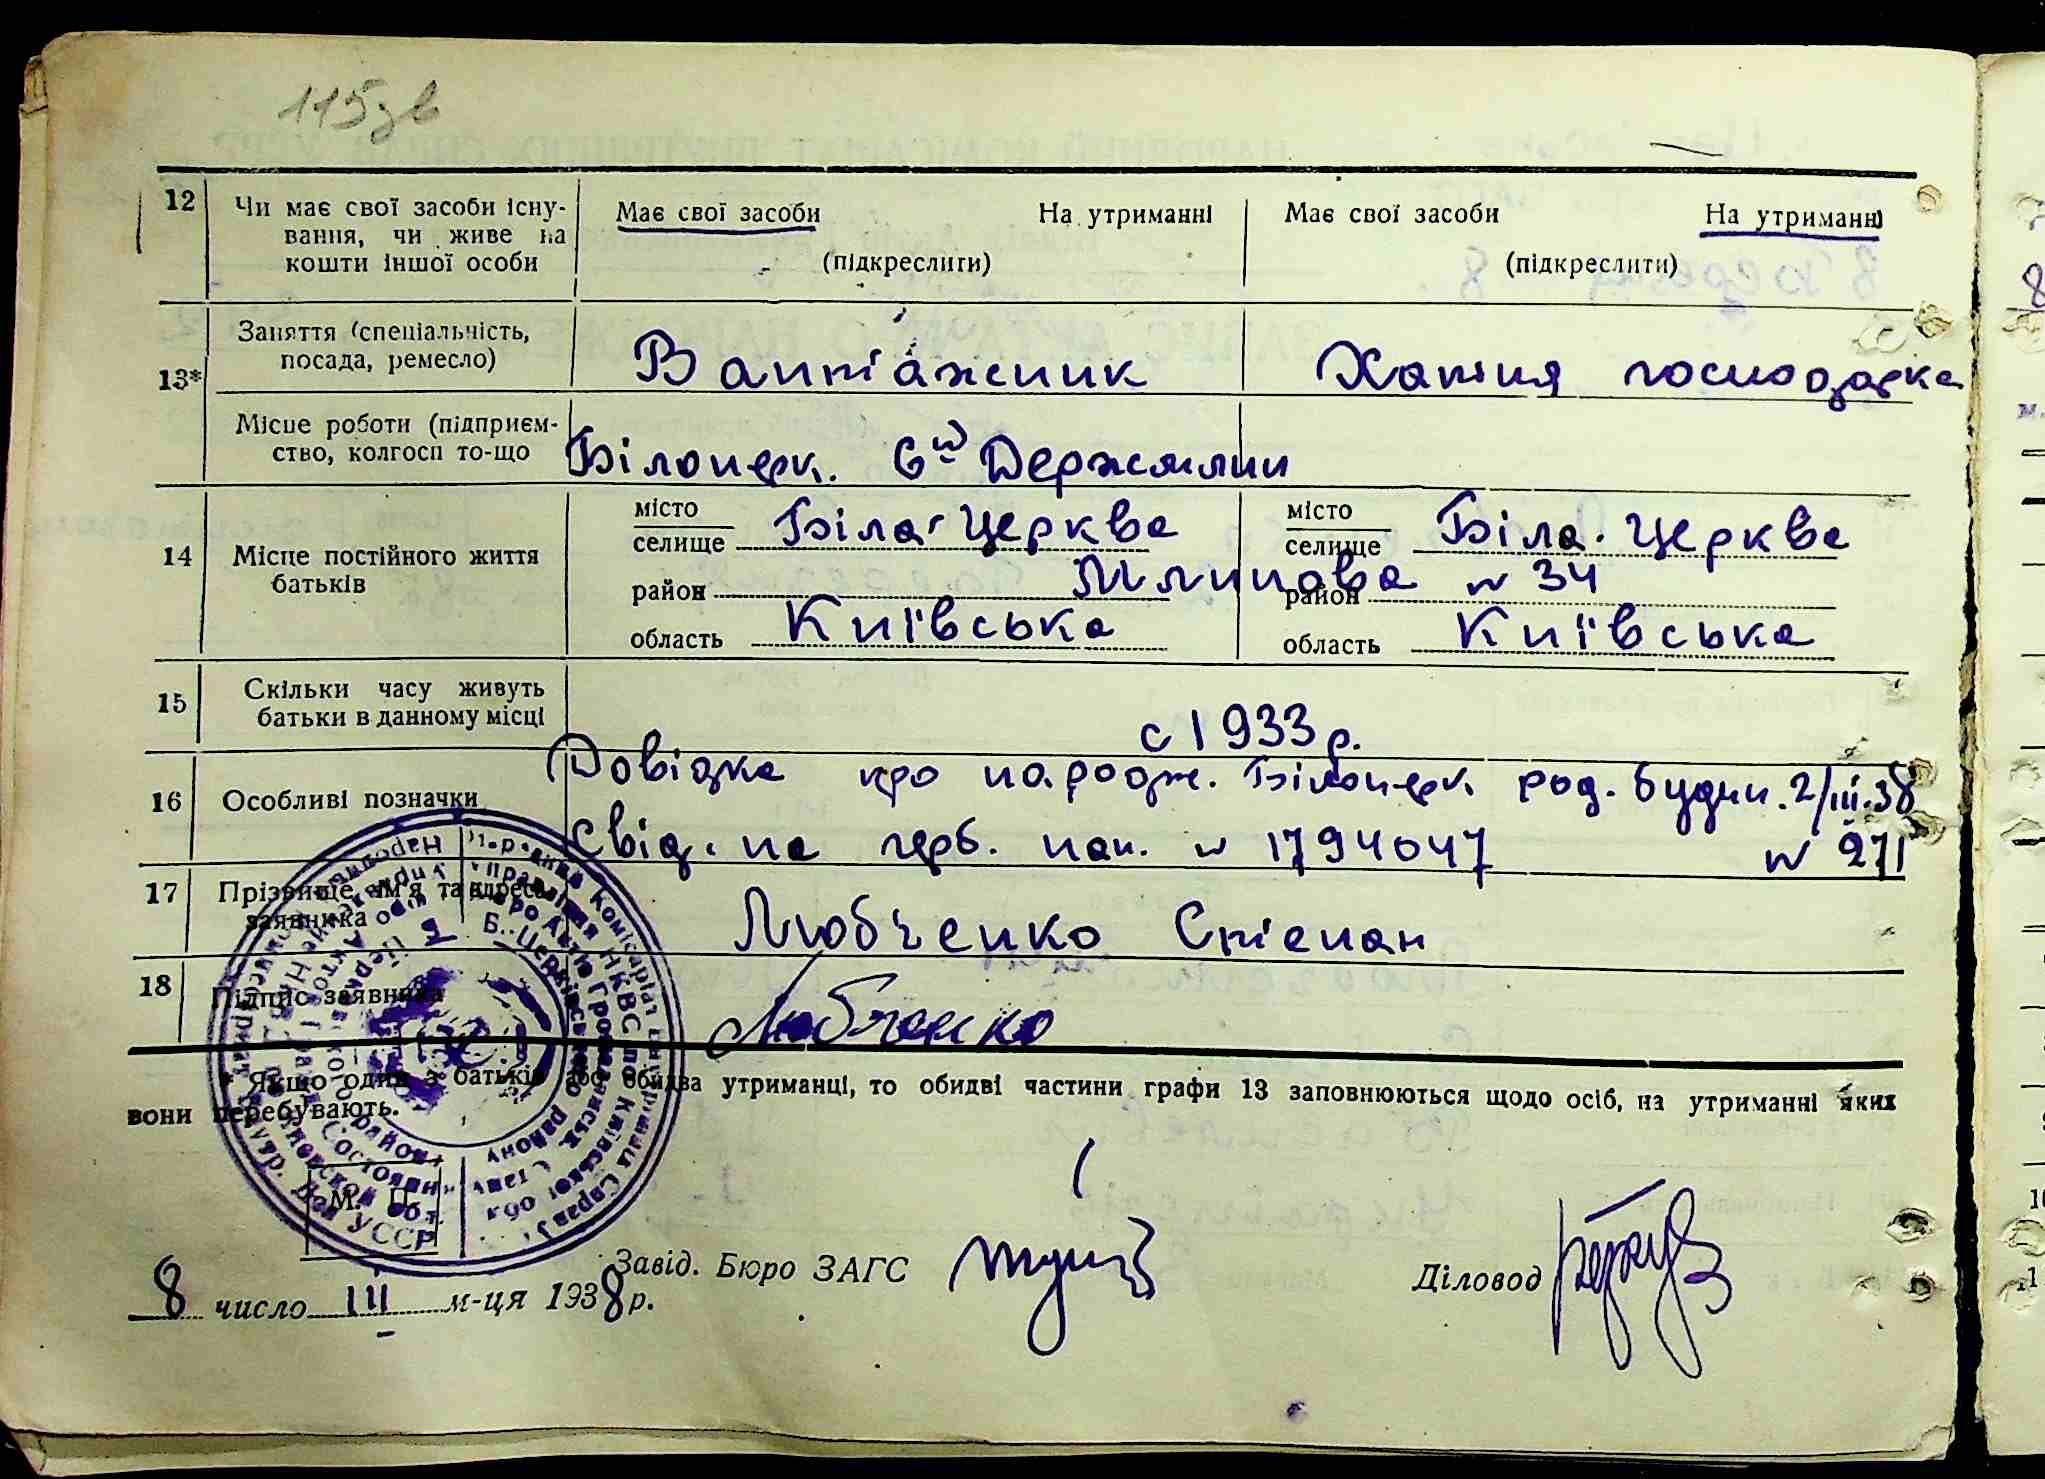 115зв
12 Чи має свої засоби існу-
вання, чи живе на
кошти іншої особи
Має свої засоби На утриманні
(підкреслити)
Має свої засоби На утриманні
(підкреслити)
13* Заняття (спеціальність,
посада, ремесло)
Вантажник
Хатня господарка
Місце роботи (підприєм-
ство, колгосп то-що
Білоцерк. Держмлин
14 Місце постійного життя
батьків
місто
селище Біла-Церква
район
область Київська
місто
селище Біла. Церква
Млинова № 34
район
область Київська
15 Скільки часу живуть
батьки в данному місці
с 1933 р.
16 Особливі позначки
Довідка про народж. Білоцерк род. будин. 2/III.38
Свід. на герб. пап. № 1794047 № 271
17 Прізвище, ім'я та адреса
заявника
Любченко Степан
18 Підпис заявника
Любченко
* Якщо один з батьків або обидва утриманці, то обидві частини графи 13 заповнюються щодо осіб, на утриманні яких
вони перебувають.
М. П.
8 число III м-ця 1938 р.
Завід. Бюро ЗАГС
Діловод